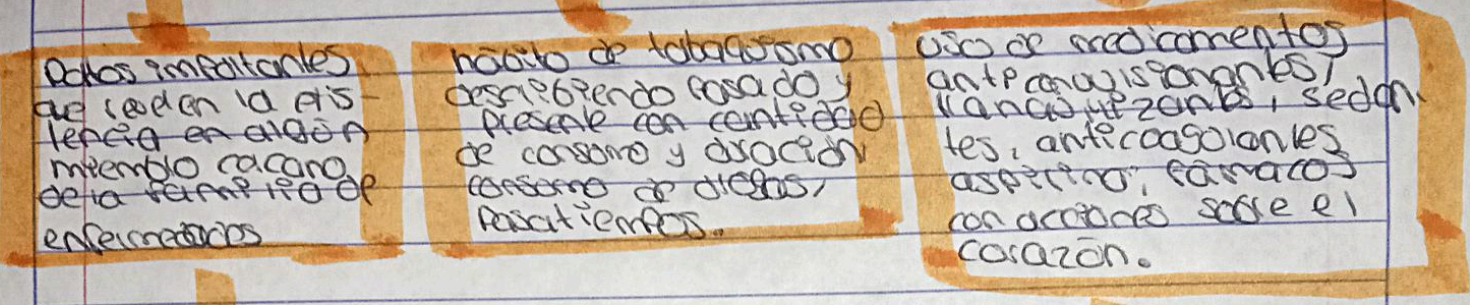 Datos importantes
que puedan la exis-
tencia en algún
miembro cacano
de la familia de
enfermedades
hábito de tabaquismo
describiendo pasado y
presente con cantidad
de consumo y duración
consumo de drogas,
Pasatiempos.
uso de medicamentos
anticonvulsionantes,
tranquilizantes, sedan-
tes, anticoagulantes
aspirina, fármacos
con acciones sobre el
corazón.